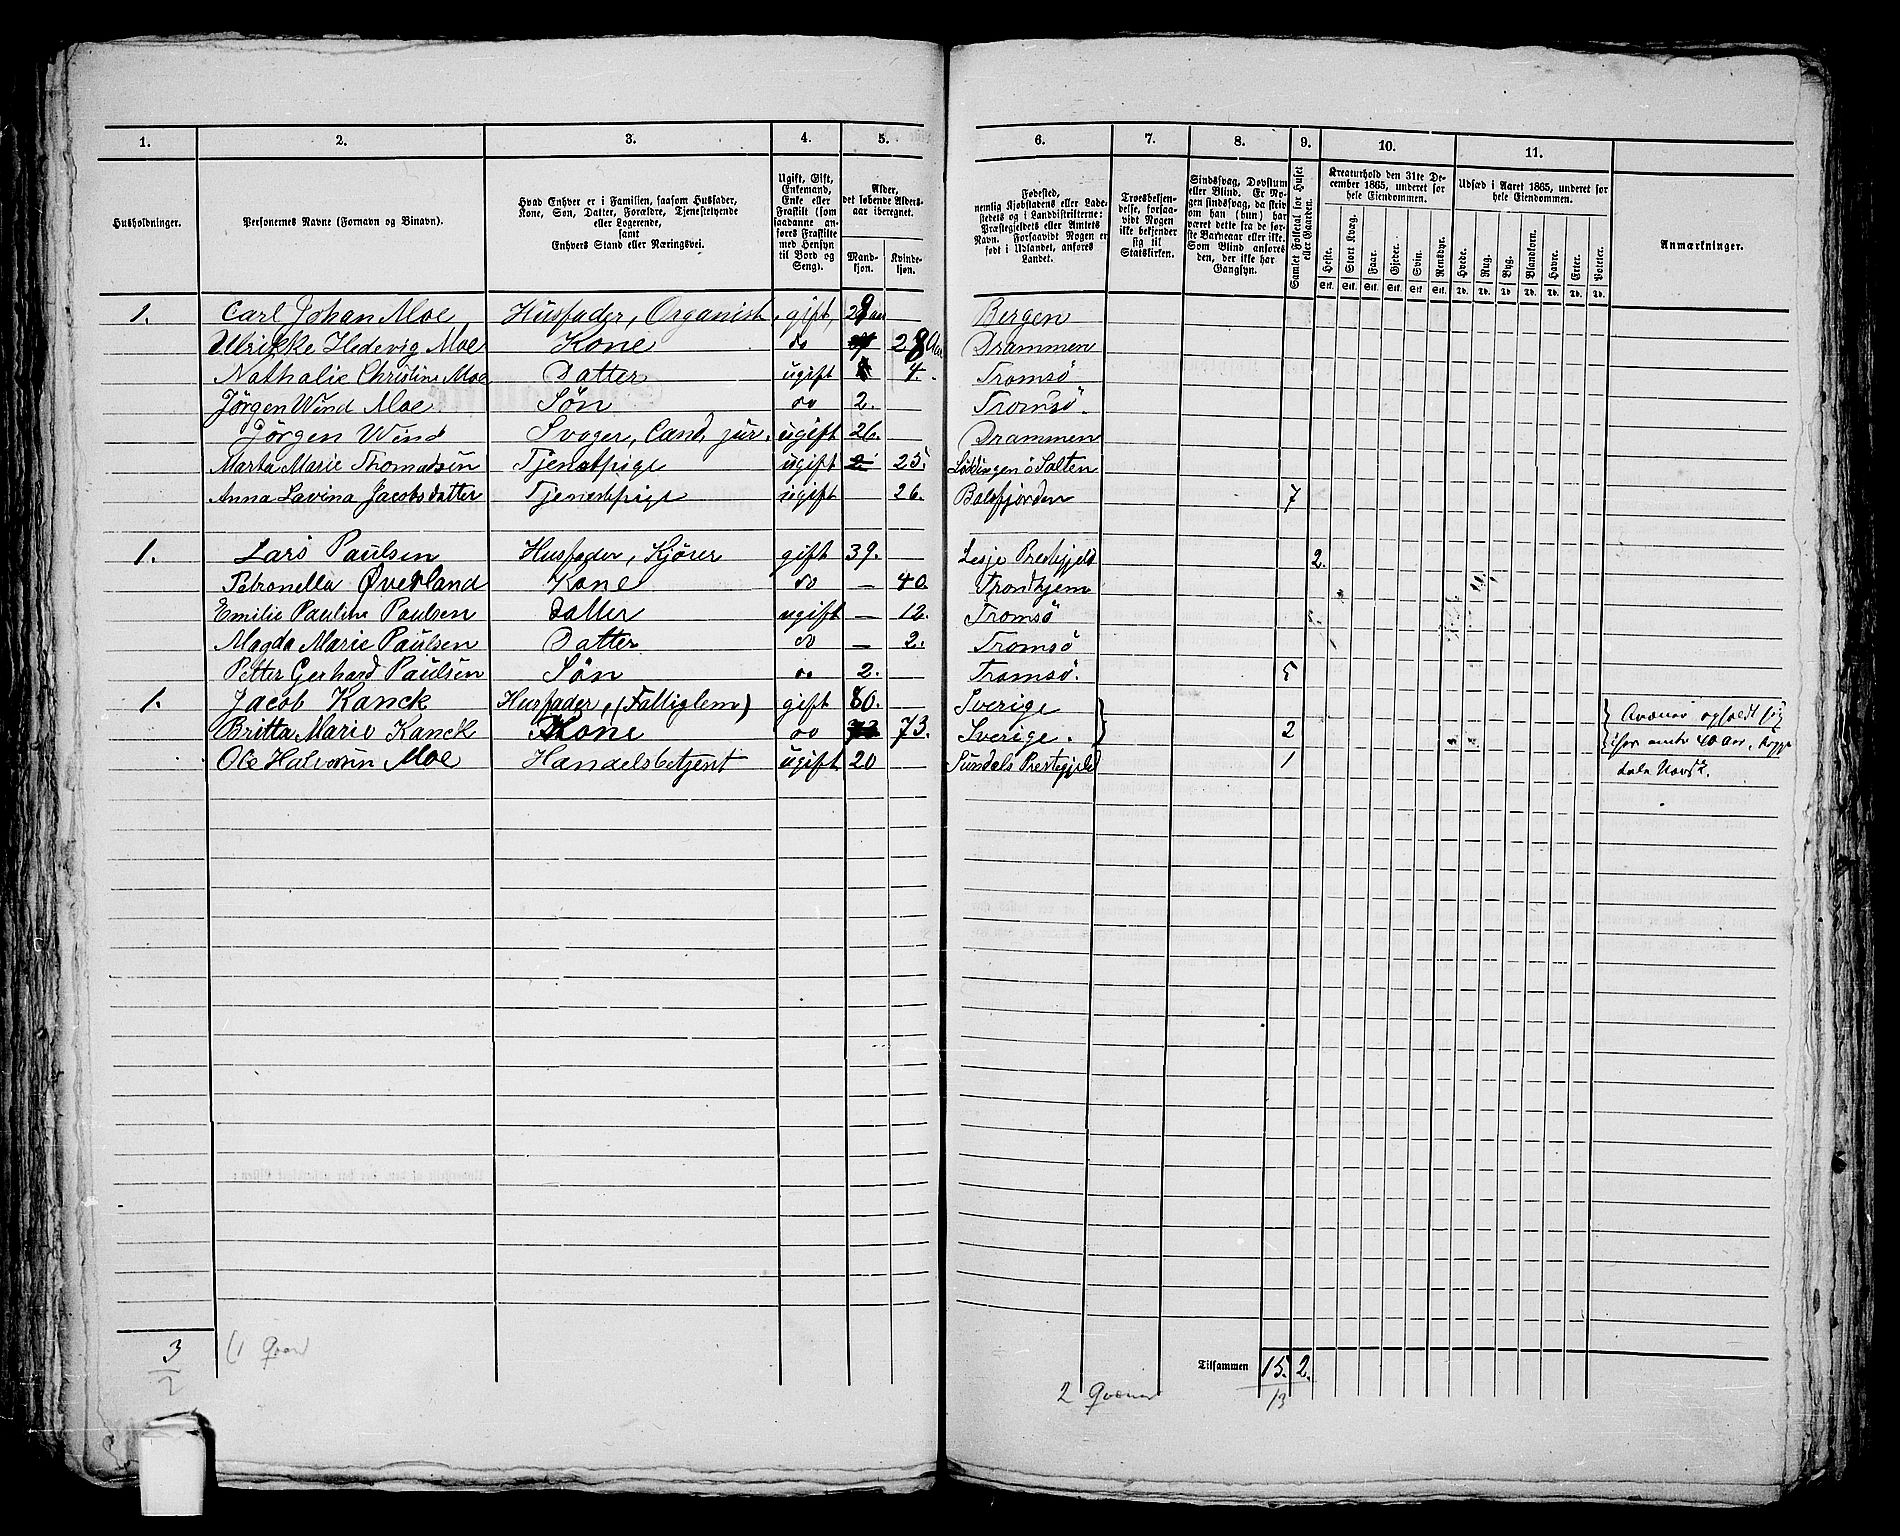 1. 2. 3. 4. 5. 6. 7. 8. 9. 10. 11.
Husholdninger.
Personernes Navne (Fornavn og Binavn).
Hvad Enhver er i Familien, saasom Husfader,
Kone, Søn, Datter, Forældre, Tjenestetyende
eller Logerende,
samt
Enhvers Stand eller Næringsvei.
Ugift, Gift,
Enkemand,
Enke eller
Fraskilt (som
saadanne an-
føres Fraskilte
med Hensyn
til Bord og
Seng).
Alder,
det løbende Alders-
aar iberegnet.
Mand-
kjøn.
Kvinde-
kjøn.
Fødested,
nemlig Kjøbstadens eller Lade-
stedets og i Landdistrikterne:
Præstegjeldets eller Amtets
Navn. Forsaavidt Nogen er
født i Udlandet, anføres
Landet.
Troesbekjen-
delse, forsaa-
vidt Nogen
ikke bekjender
sig til
Statskirken.
Sindssvag, Døvstum
eller Blind. Er No-
gen sindssvag, da skriv
om han (hun) har
været dette fra de før-
ste Barneaar eller ikke.
Som Blind anføres
den, der ikke har
Gangsyn.
Samlet Folketal for Huset
eller Gaarden.
Kreaturhold den 31te De-
cember 1865, underet for
hele Eiendommen.
Heste. Stort Kvæg. Faar. Gjeder. Svin. Rensdyr.
Stk. Stk. Stk. Stk. Stk. Stk.
Udsæd i Aaret 1865, underet for
hele Eiendommen.
Hvede. Rug. Byg. Blandkorn. Havre. Erter. Poteter.
Td. Td. Td. Td. Td. Td. Td.
Anmærkninger.
1. Carl Johan Moe Husfader, Organist, gift, 29 Bergen
Ulrikke Hedevig Moe Kone do 28 Drammen
Nathalie Christine Moe Datter ugift 4. Tromsö
Jörgen Wind Moe Sön do 2. Tromsö.
Jörgen Wind Svoger, Cand, jur. ugift 26. Drammen
Marta Marie Thomadsen Tjenestpige ugift 25. Löddingen i Salten
Anna Lavina Jacobsdatter Tjenestpige ugift 26. Balsfjorden 7
1. Lars Paulsen Husfader, Kjörer gift 39. Lesje Prestegjeld 2.
Petronella Øverland Kone do — 40. Trondhjem
Emilie Pauline Paulsen Datter ugift — 12. Tromsö
Magda Marie Paulsen Datter do — 2. Tromsö
Petter Gerhard Paulsen Sön do 2. Tromsö. 5
1. Jacob Kanck Husfader, (Fattiglem) gift 80. Sverige
Britta Marie Kanck Kone do 73. Sverige. 2
Ole Halvorsen Moe Handelsbetjent ugift 20 Sundals Prestegjeld 1
Qvæner opholdt sig
40 Aar, begge
tale Norsk.
3
2
(1 Qvæn)
Tilsammen 15. 2.
13
2 Qvæner